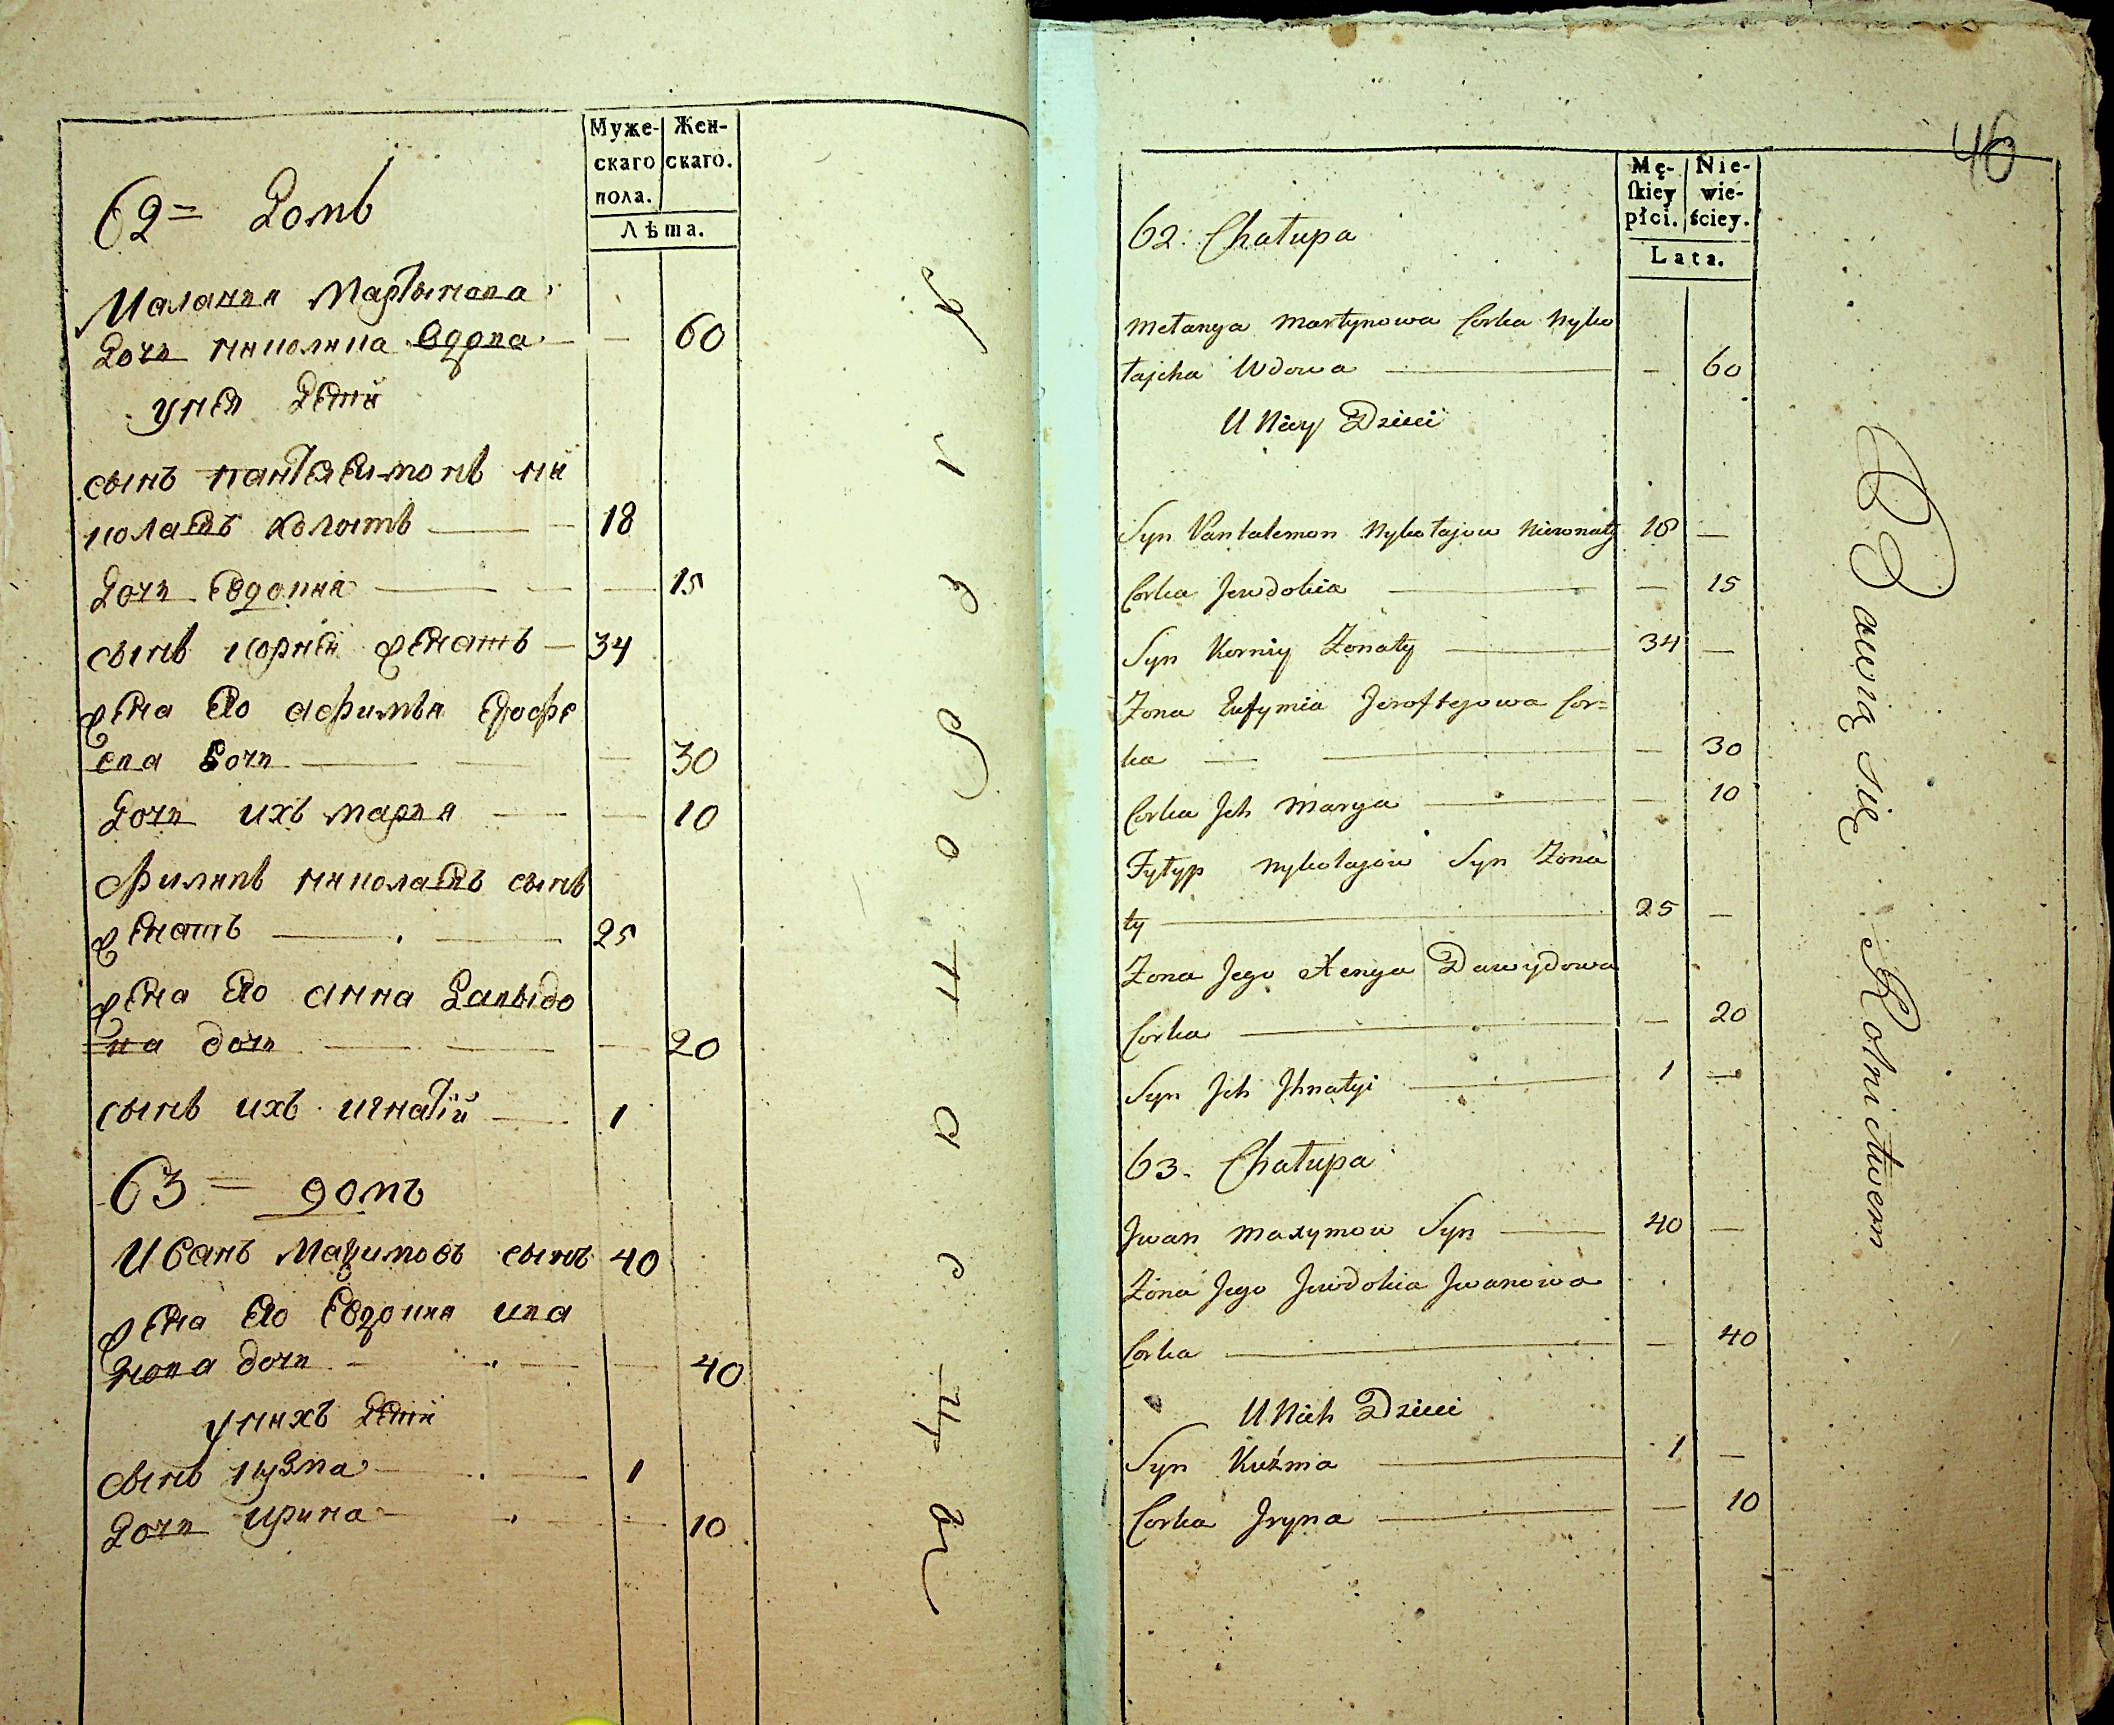 Муже-
скаго
пола.
Жен-
скаго.
Лѣта.
62= Домъ
Малания Мартынова
дочь николина вдова — — 60
у нея дети
сынъ пантелеимонъ ни
колаевъ холотъ — 18
дочь Евдокия — — 15
сынъ корней женатъ — 34
жена его афимья Ерофе
ева дочь — — 30
дочь ихъ мария — — 10
Филипъ николаевъ сынъ
женатъ — 25
жена его анна давыдо
ва дочь — — 20
сынъ ихъ игнатій — 1
63= домъ
Иванъ Максимовъ сынъ 40
жена его Евдокия ива
нова дочь — — 40
у нихъ дети
сынъ кузма — 1
дочь ирина — — 10
46
Mę-
skiey
płci.
Nie-
wie-
ściey.
Lata.
62. Chałupa
Mełanya Martynowa Corka Nyko
łajcha Wdowa — — 60
U Niey Dzieci
Syn Pantalemon Nykołajow Nieżonaty 18 —
Corka Jewdokia — — 15
Syn Korniy Żonaty — 34 —
Żona Eufymia Jerofiejowa Cor=
ka — — 30
Corka Jch Marya — — 10
Fyłyp Nykołajow Syn Żona
ty — 25 —
Żona Jego Xenya Dawydowa
Corka — — 20
Syn Jch Jhnatyi — 1 —
63. Chałupa
Jwan Maxymow Syn — 40 —
Żona Jego Jewdokia Jwanowa
Corka — — 40
U Nich Dzieci
Syn Kuźma — 1 —
Corka Jryna — — 10
Bawią się Rolnictwem